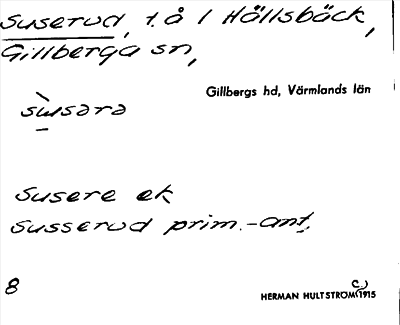 Suserud, t. å l Hällsbäck,
Gillberga sn,
Gillbergs hd, Värmlands län
sùsərə
Susere ek
Susserud prim.-ant.
8
HERMAN HULTSTRÖM (c.) 1915